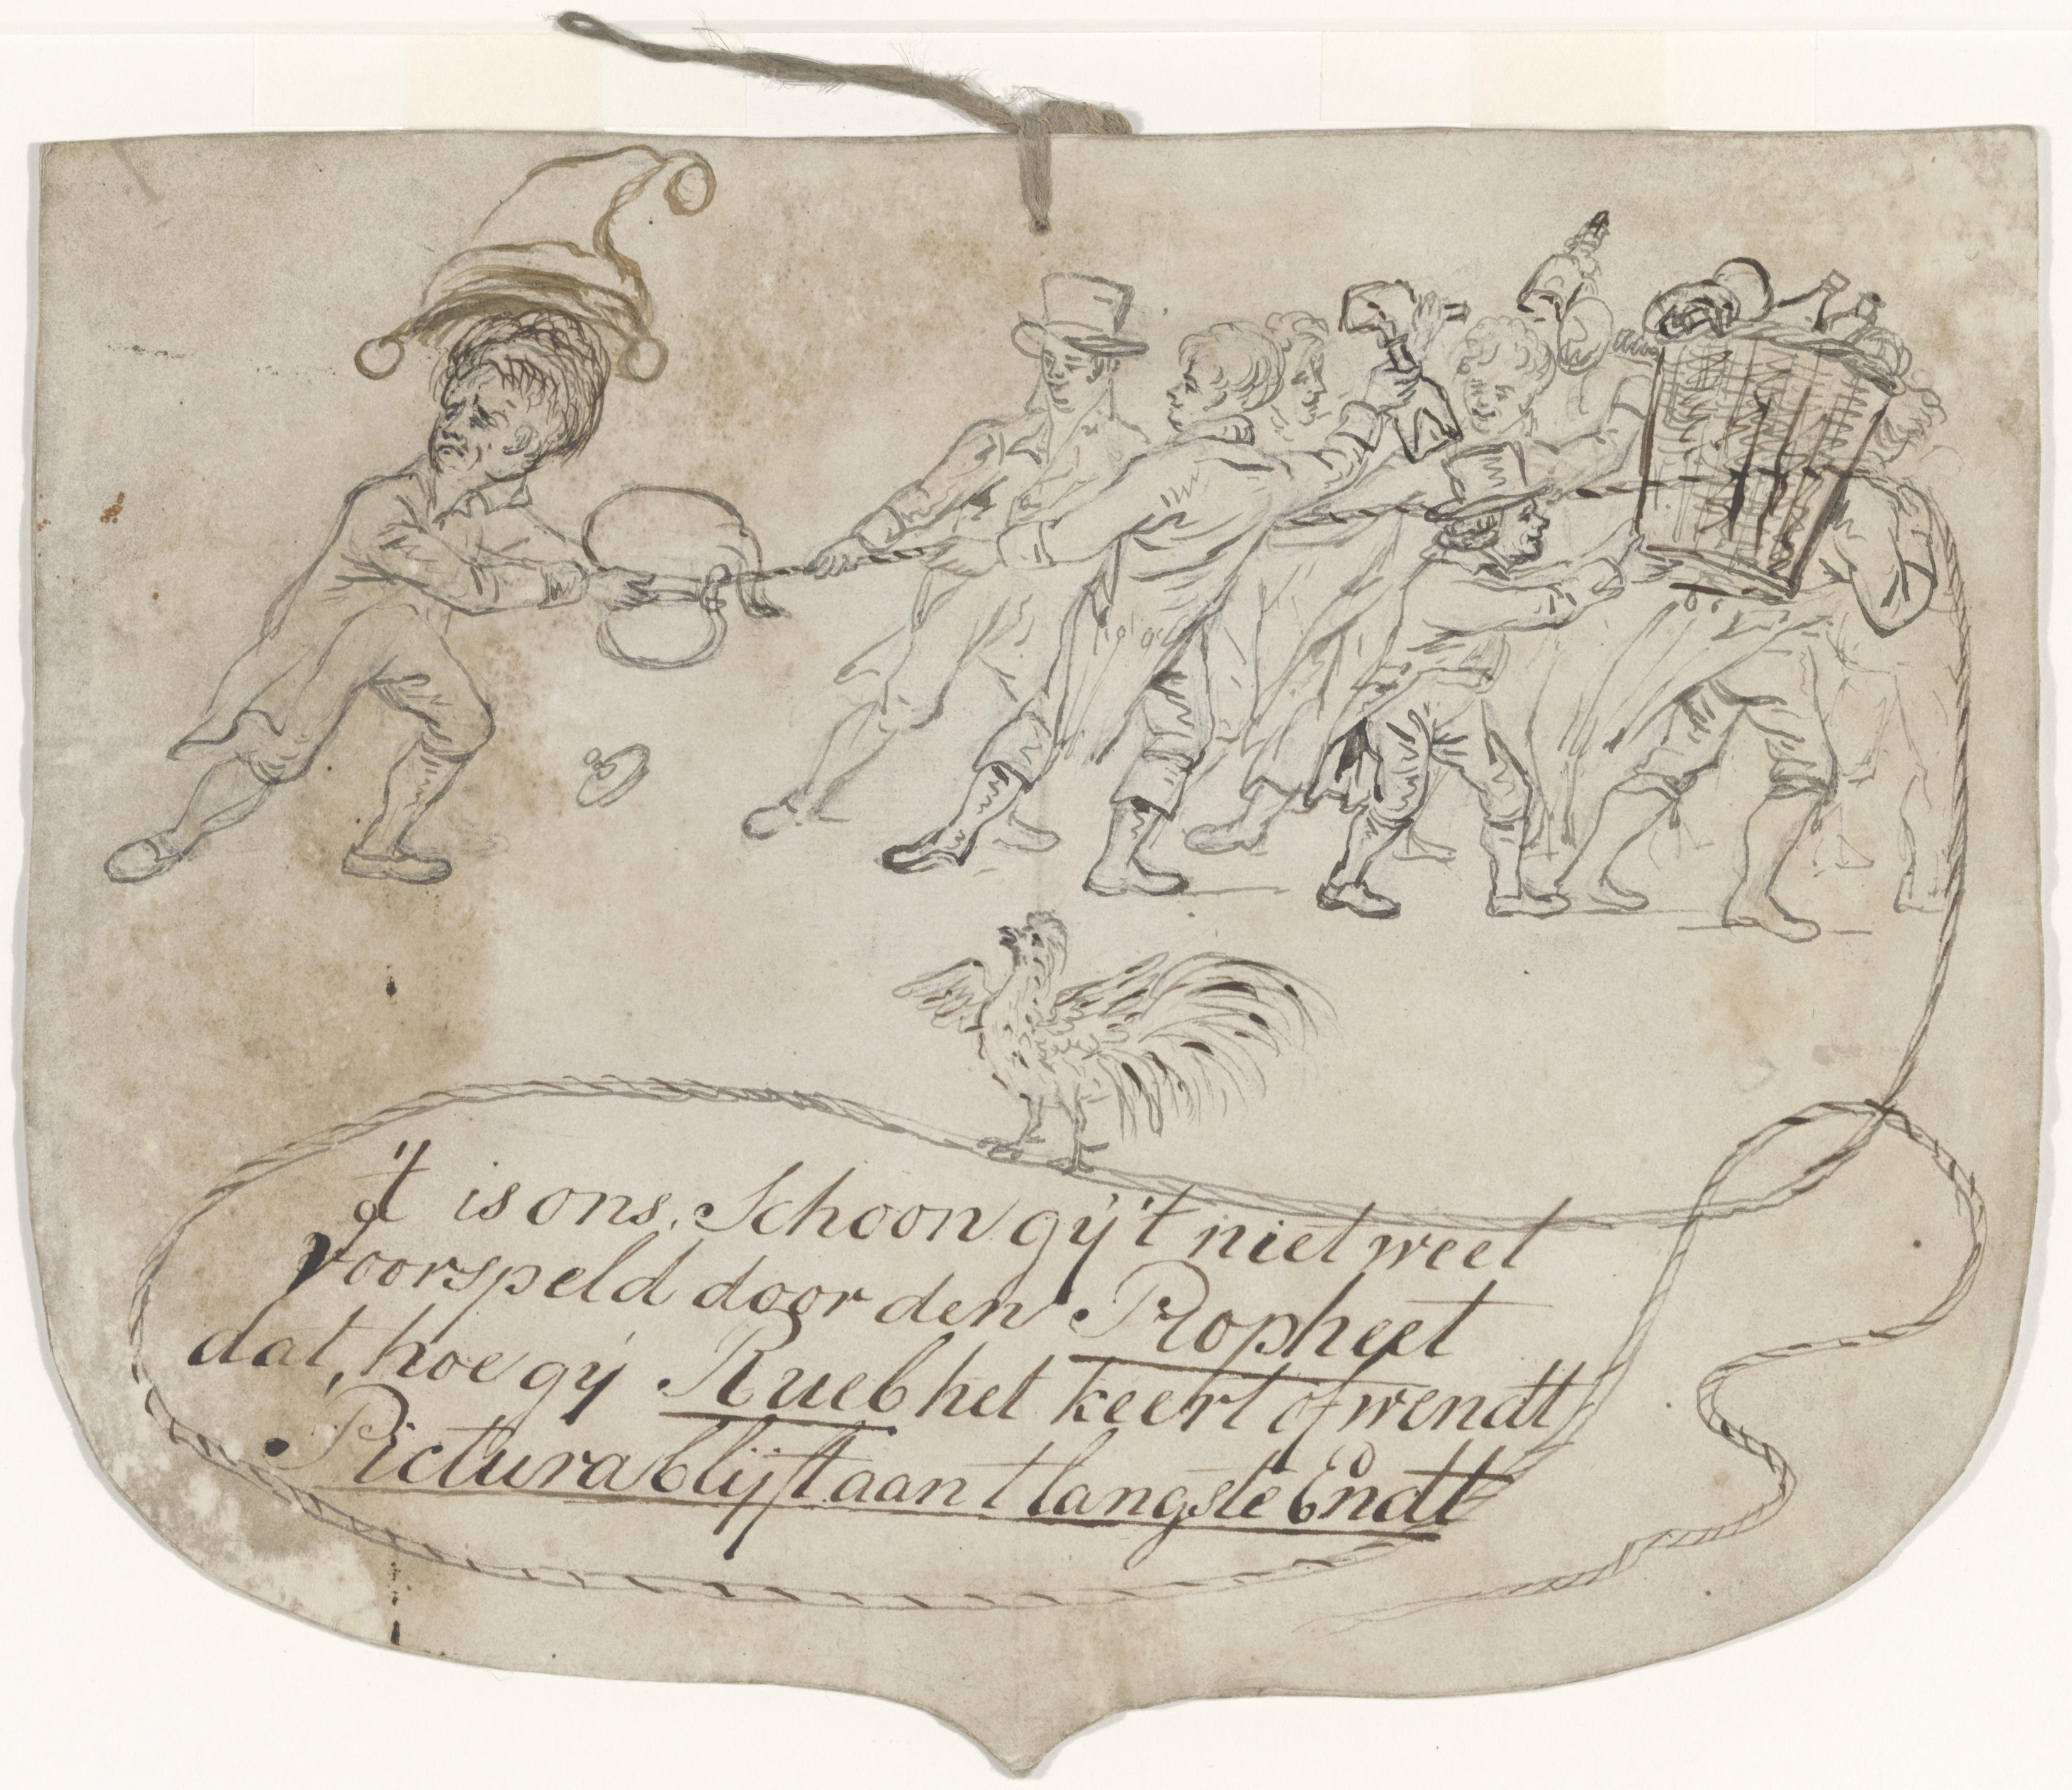 't is ons, Schoon gij 't niet weet
voorspeld door den Propheet
dat, hoe gij Rueb het keert of wendt
Pictura blijft aan t langste Endt